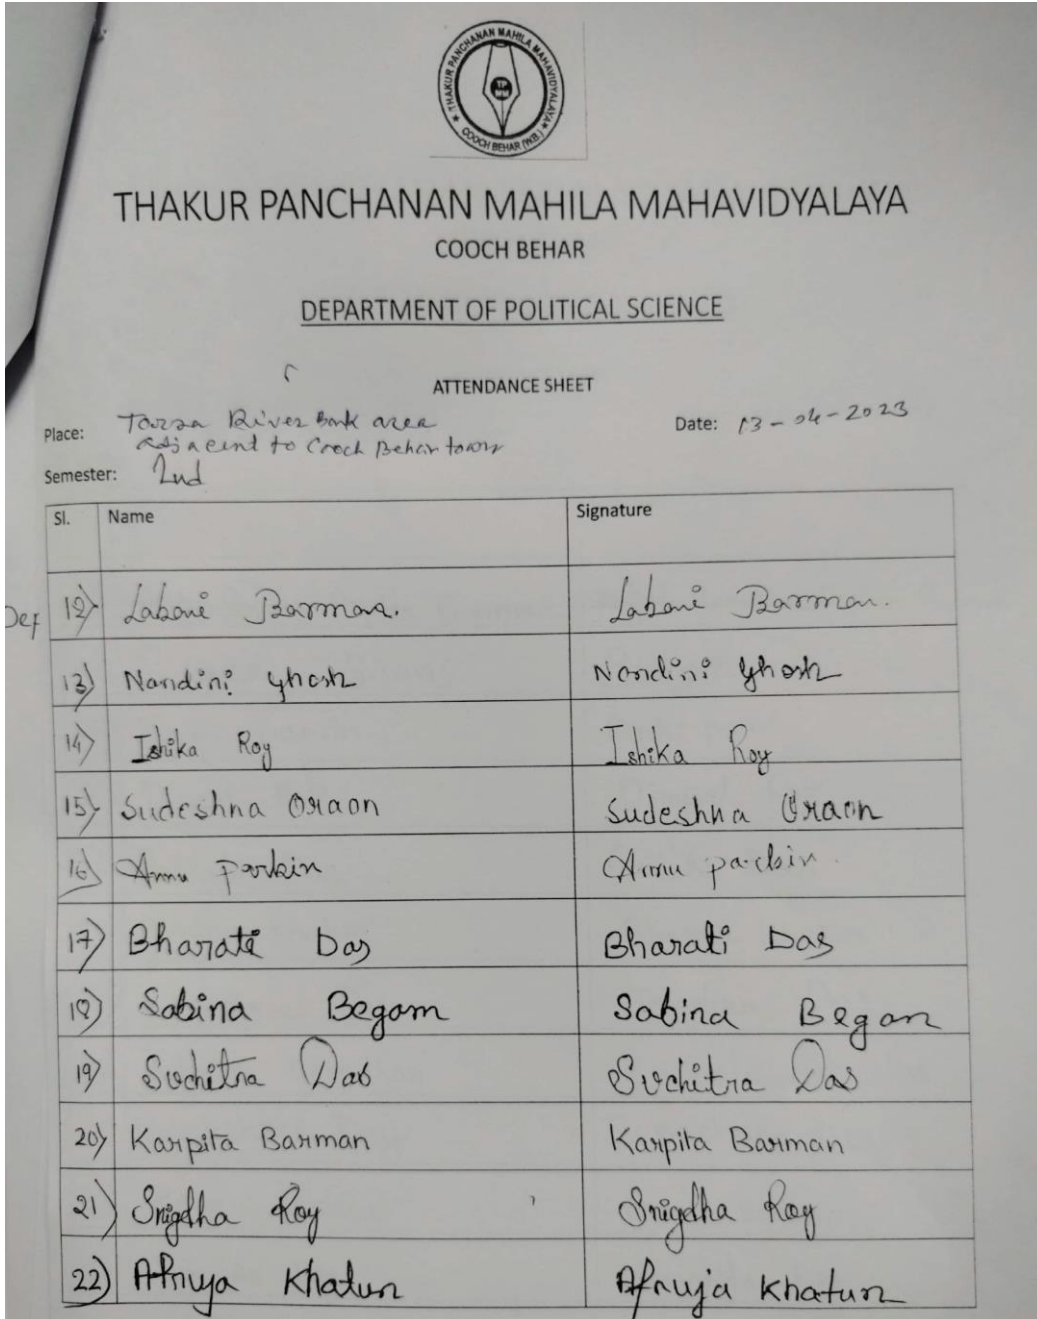 THAKUR PANCHANAN MAHILA MAHAVIDYALAYA
COOCH BEHAR (W.B.)
TP
MM
THAKUR PANCHANAN MAHILA MAHAVIDYALAYA
COOCH BEHAR
DEPARTMENT OF POLITICAL SCIENCE
ATTENDANCE SHEET
Place: Torsa River Bank area Date: 13-04-2023
adjacent to Cooch Behar town
Semester: 2nd
Sl. Name Signature
Def 12) Labani Barman. Labani Barman.
13) Nandini Ghosh Nandini Ghosh
14) Ishika Roy Ishika Roy
15) Sudeshna Oraon Sudeshna Oraon
16) Annu parbin Annu parbin
17) Bharati Das Bharati Das
18) Sabina Begam Sabina Begam
19) Suchitra Das Suchitra Das
20) Karpita Barman Karpita Barman
21) Snigdha Roy Snigdha Roy
22) Afruja Khatun Afruja Khatun